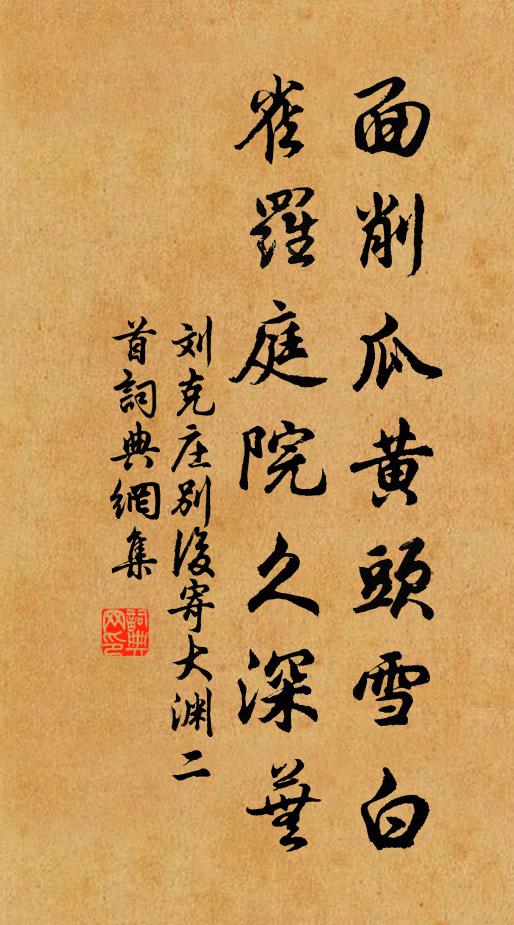 面削瓜黄頭雪白
雀羅庭院久深蕪
刘克庄别後寄大渊二
首詞典網集
詞典网印